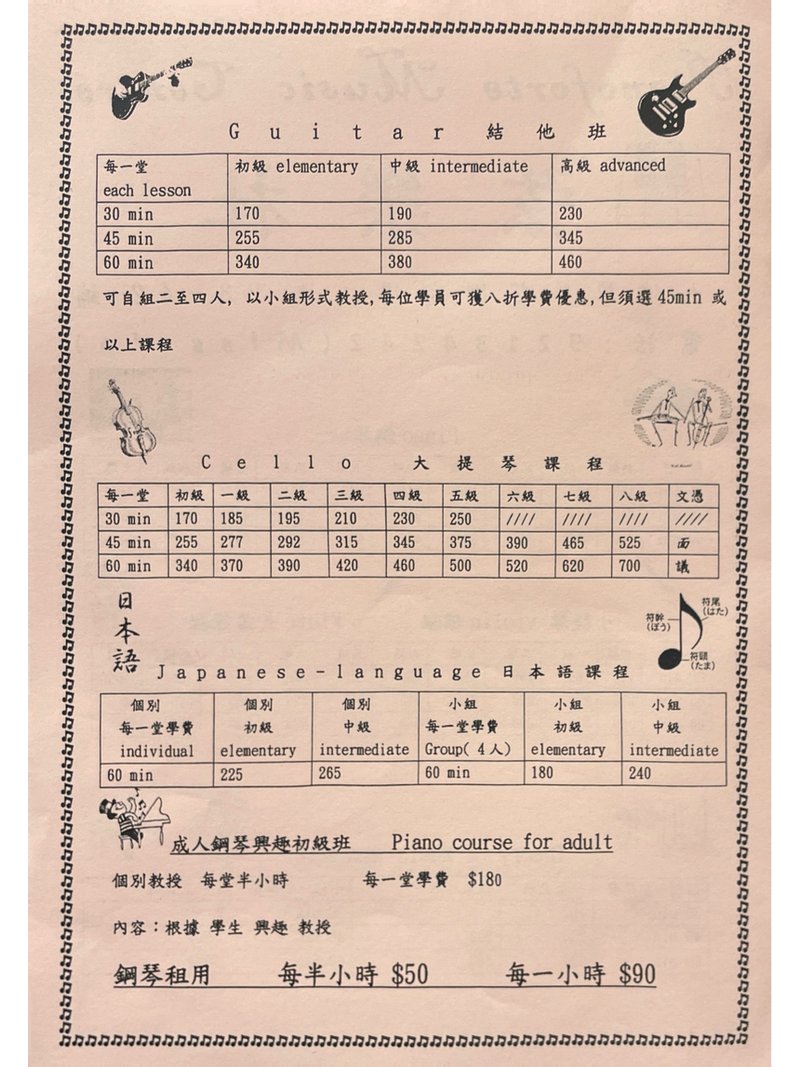 Guitar 結他班
每一堂 each lesson 初級 elementary 中級 intermediate 高級 advanced
30 min 170 190 230
45 min 255 285 345
60 min 340 380 460
可自組二至四人, 以小組形式教授,每位學員可獲八折學費優惠,但須選45min 或
以上課程
Cello 大提琴課程
每一堂 初級 一級 二級 三級 四級 五級 六級 七級 八級 文憑
30 min 170 185 195 210 230 250 //// //// //// ////
45 min 255 277 292 315 345 375 390 465 525 面
60 min 340 370 390 420 460 500 520 620 700 議
日本語
符幹(ぼう)
符尾(はた)
符頭(たま)
Japanese-language 日本語課程
個別 個別 個別 小組 小組 小組
每一堂學費 初級 中級 每一堂學費 初級 中級
individual elementary intermediate Group( 4人) elementary intermediate
60 min 225 265 60 min 180 240
成人鋼琴興趣初級班 Piano course for adult
個別教授 每堂半小時 每一堂學費 $180
內容：根據 學生 興趣 教授
鋼琴租用 每半小時 $50 每一小時 $90